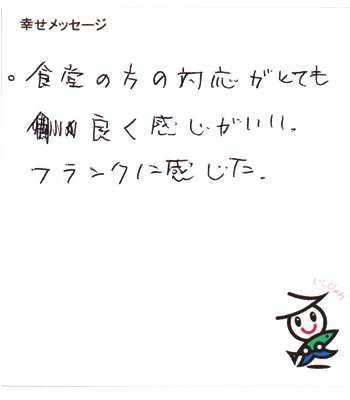 幸せメッセージ
。食堂の方の対応がとても
良く感じがいい。
フランクに感じた。